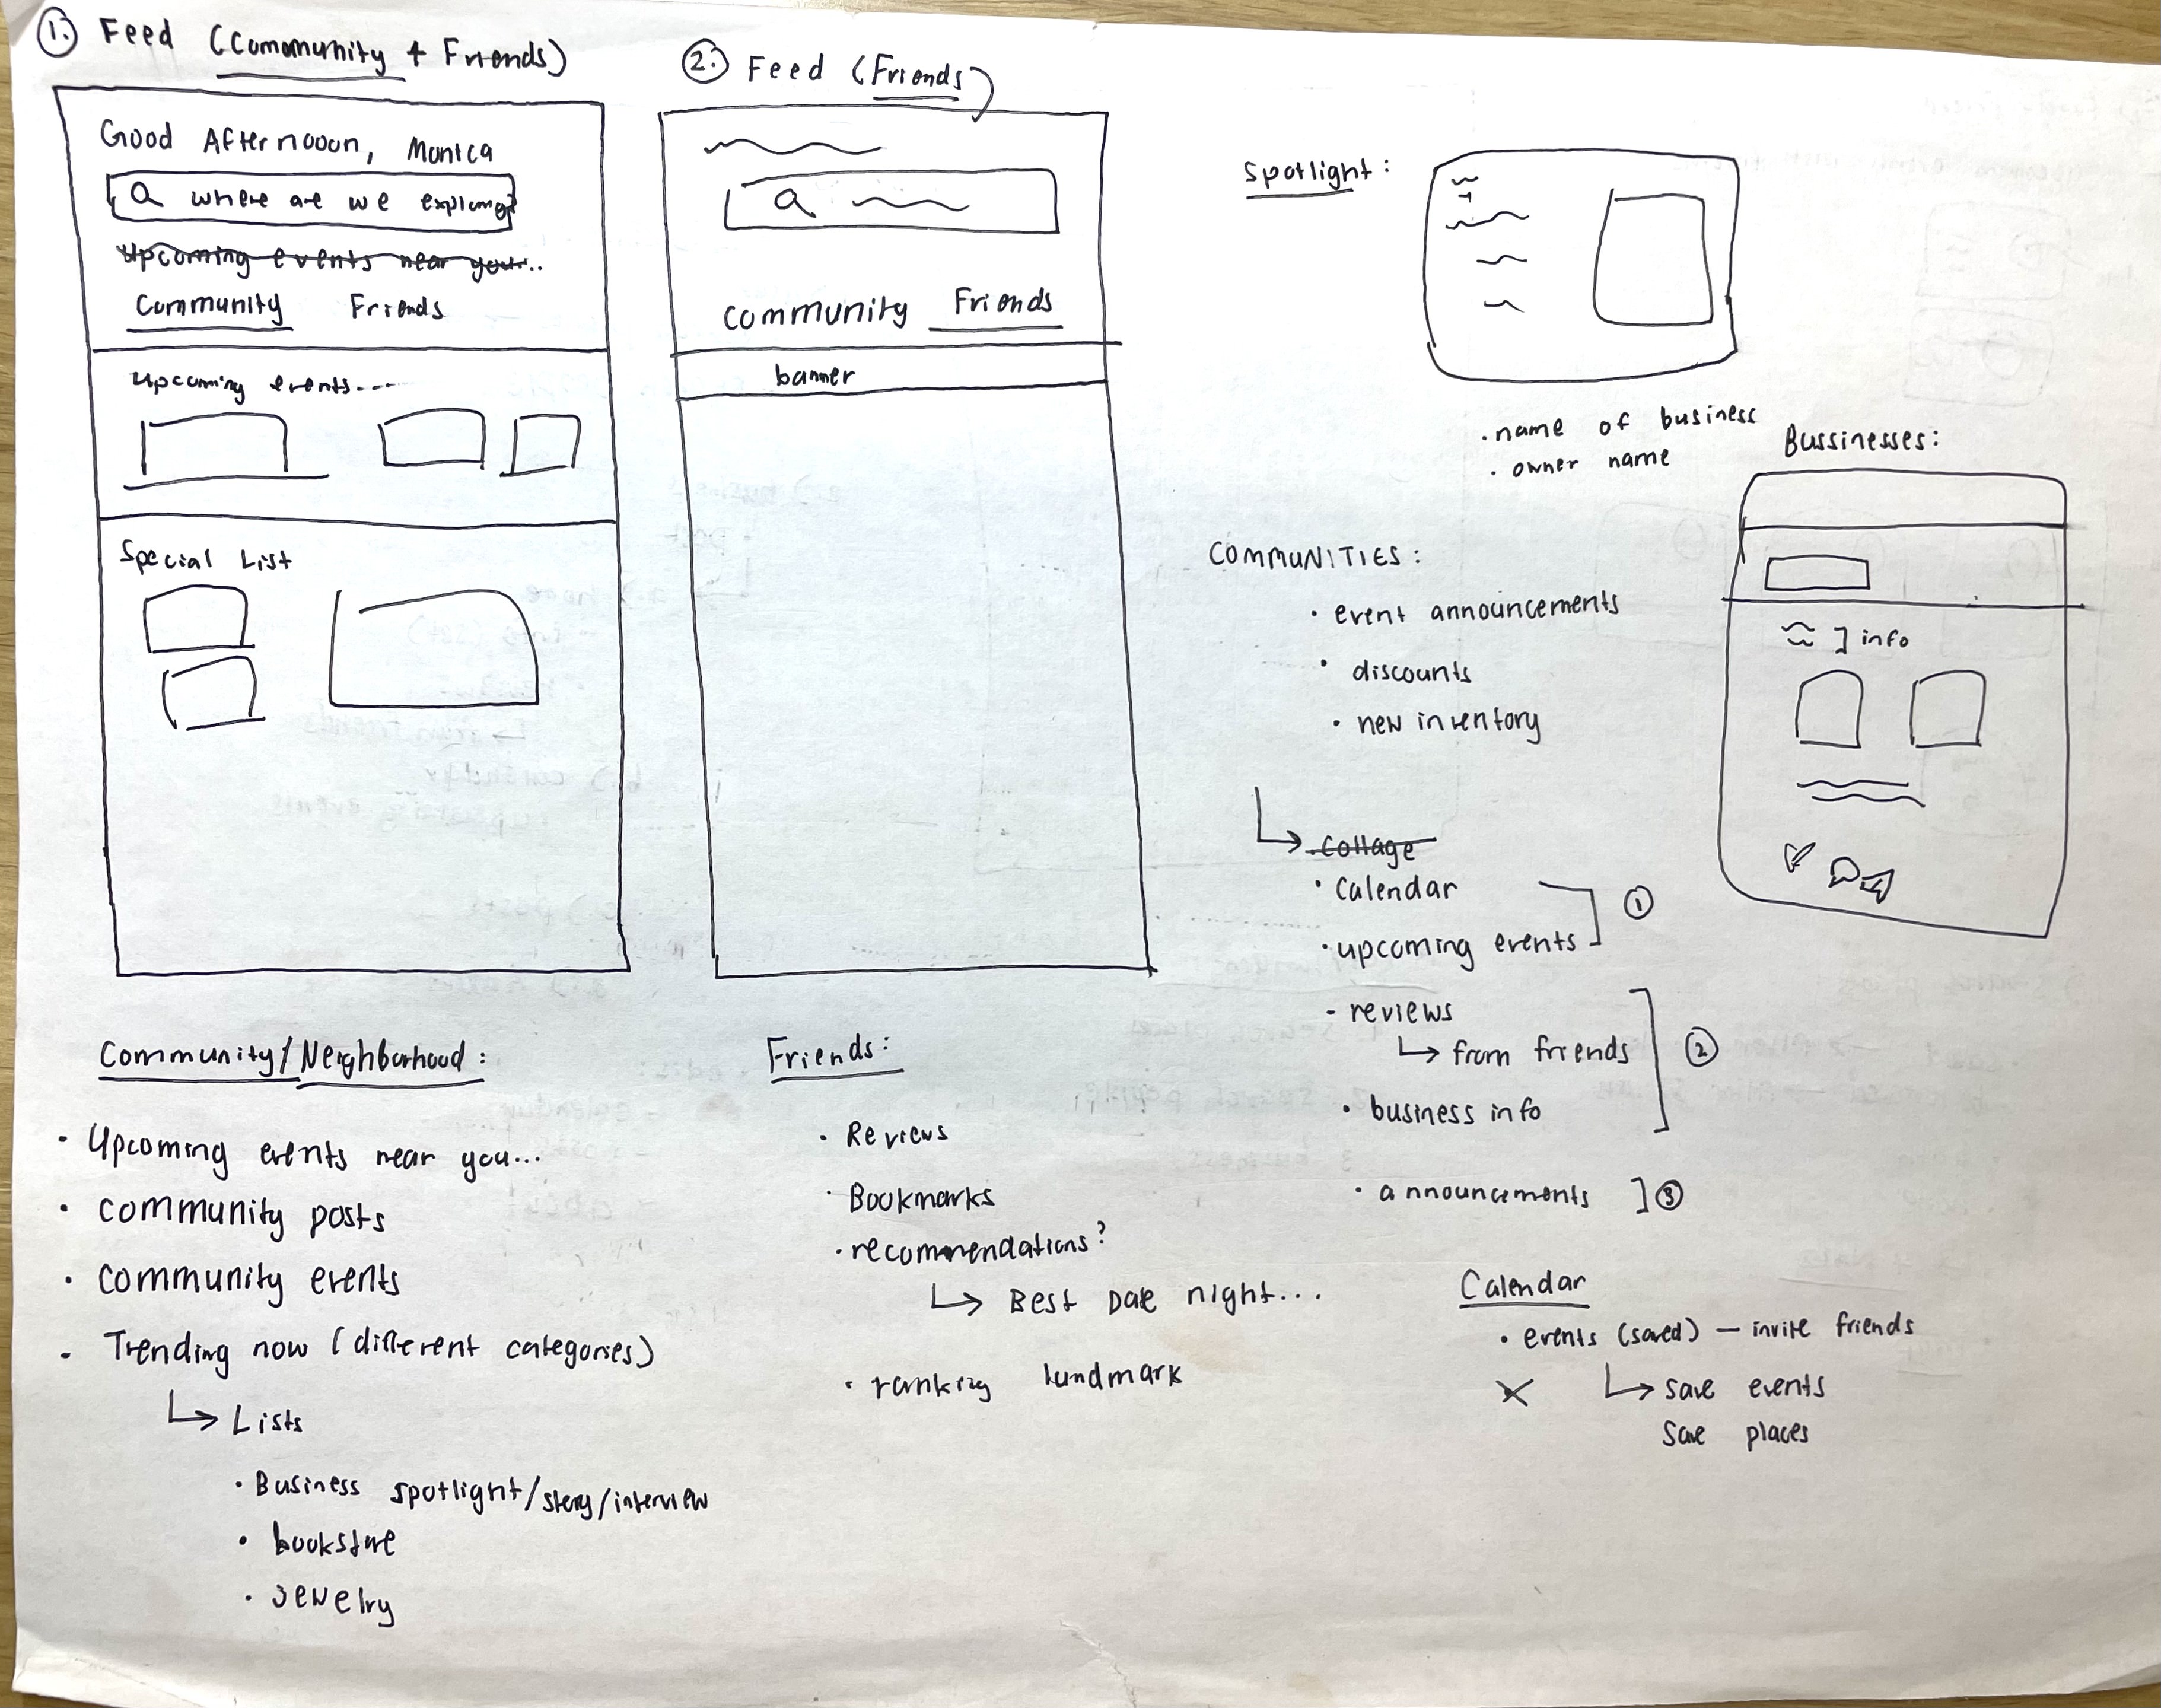 1. Feed (Commomunity + Friends)
Good Afternooon, Monica
where are we exploring?
Upcoming events near you...
Community Friends
Upcoming events...
Special List
2. Feed (Friends)
Community Friends
banner
Spotlight:
• name of business
• owner name
Bussinesses:
] info
COMMUNITIES:
• event announcements
• discounts
• new inventory
↳ • collage
• Calendar
• upcoming events ] 1
- reviews
↳ from friends
• business info ] 2
• announcements ] 3
Community/Neighborhood:
• Upcoming events near you...
• Community posts
• Community events
- Trending now (different categories)
↳ Lists
• Business spotlight/story/interview
• bookstore
• Jewelry
Friends:
• Reviews
• Bookmarks
• recommendations?
↳ Best Date night...
• ranking landmark
Calendar
• events (saved) — invite friends
X ↳ save events
Save places